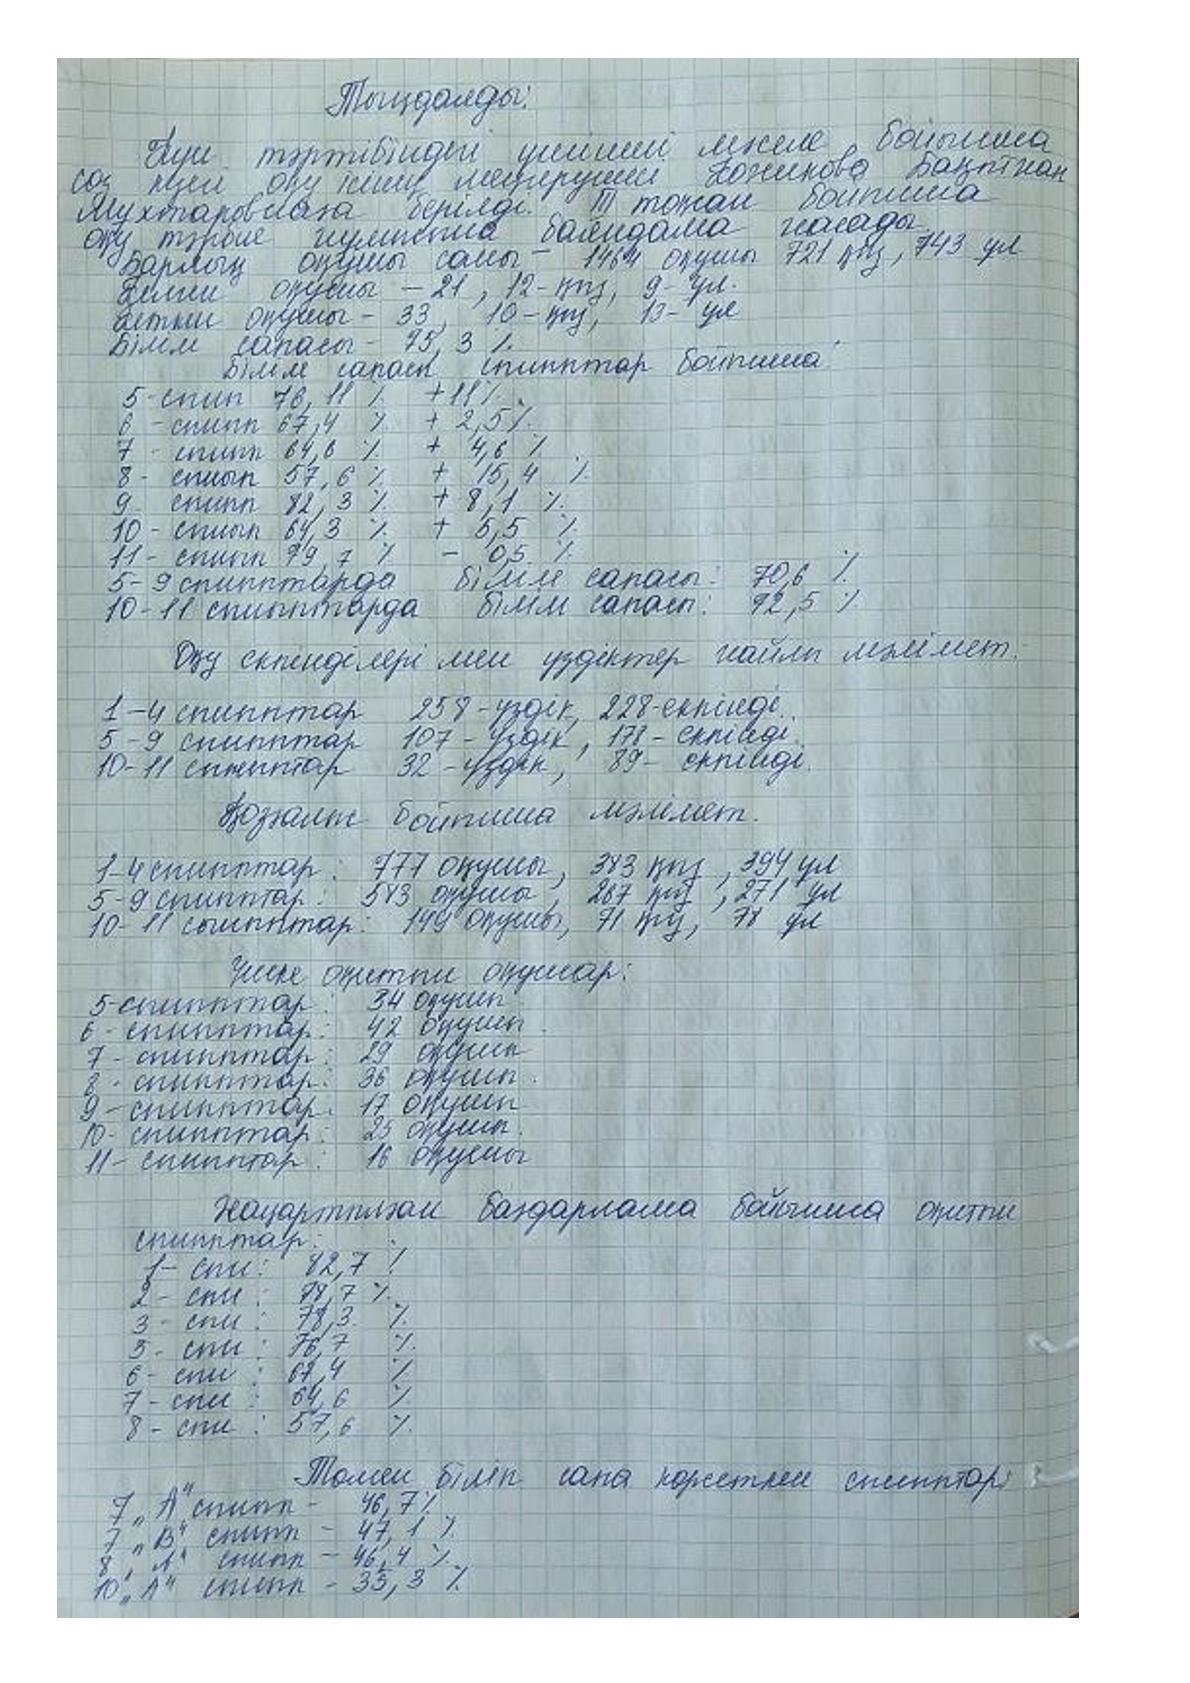 Тыңдалды:
Күн тәртібіндегі үшінші мәселе бойынша
сөз мұғ оқу ісінің меңгерушісі Кожикова Бақытжан
Мухтаровнаға берілді. III тоқсан бойынша
оқу тәрбие жұмысына баяндама жасады.
Барлық оқушы саны - 1464 оқушы 721 қыз, 743 ұл
Келген оқушы - 21, 12-қыз, 9-ұл.
Кеткен оқушы - 33,  -қыз,  - ұл
Білім сапасы - 75, 3 %.
Білім сапасы сыныптар бойынша:
5-сынып 76, 11 % +11%.
6 - сынып 67,4 % + 2,5%.
7 - сынып 64,6 % + 4,6 %
8 - сынып 57,6 % + 15,4 %.
9 сынып 82, 3 % + 8,1 %.
10 - сынып 64,3 % + 5,5 %.
11 - сынып 79, 7 % - 0,5 %.
5-9 сыныптарда білім сапасы: 70,6 %
10-11 сыныптарда білім сапасы: 72,5 %
Оқу екпінділері мен үздіктер жайлы мәлімет:
1-4 сыныптар 258-үздік, 228-екпінді.
5-9 сыныптар 107 - үздік, 178 - екпінді.
10-11 сыныптар 32 -үздік, 89- екпінді.
Қозғалыс бойынша мәлімет.
1-4 сыныптар: 777 оқушы, 383 қыз, 394 ұл
5-9 сыныптар: 583 оқушы, 267 қыз, 271 ұл
10-11 сыныптар: 149 оқушы, 71 қыз, 78 ұл
Үште оқитын оқушылар:
5-сыныптар: 34 оқушы
6 - сыныптар: 42 оқушы.
7 - сыныптар: 29 оқушы
8 - сыныптар: 36 оқушы.
9 - сыныптар: 17 оқушы
10- сыныптар: 25 оқушы.
11- сыныптар: 16 оқушы
Жаңартылған бағдарлама бойынша оқитын
сыныптар:
1- сын: 82,7 %
2- сын: 78,7 %.
3- сын: 78,3 %.
5- сын: 76,7 %.
6- сын: 67,4 %
7- сын: 64,6 %.
8- сын: 57,6 %.
Төмен білім сапа көрсеткен сыныптар:
7 "А" сынып - 46,7%
7 "В" сынып - 47, 1 %
8 "А" сынып - 46,4 %.
10 "А" сынып - 33, 3 %